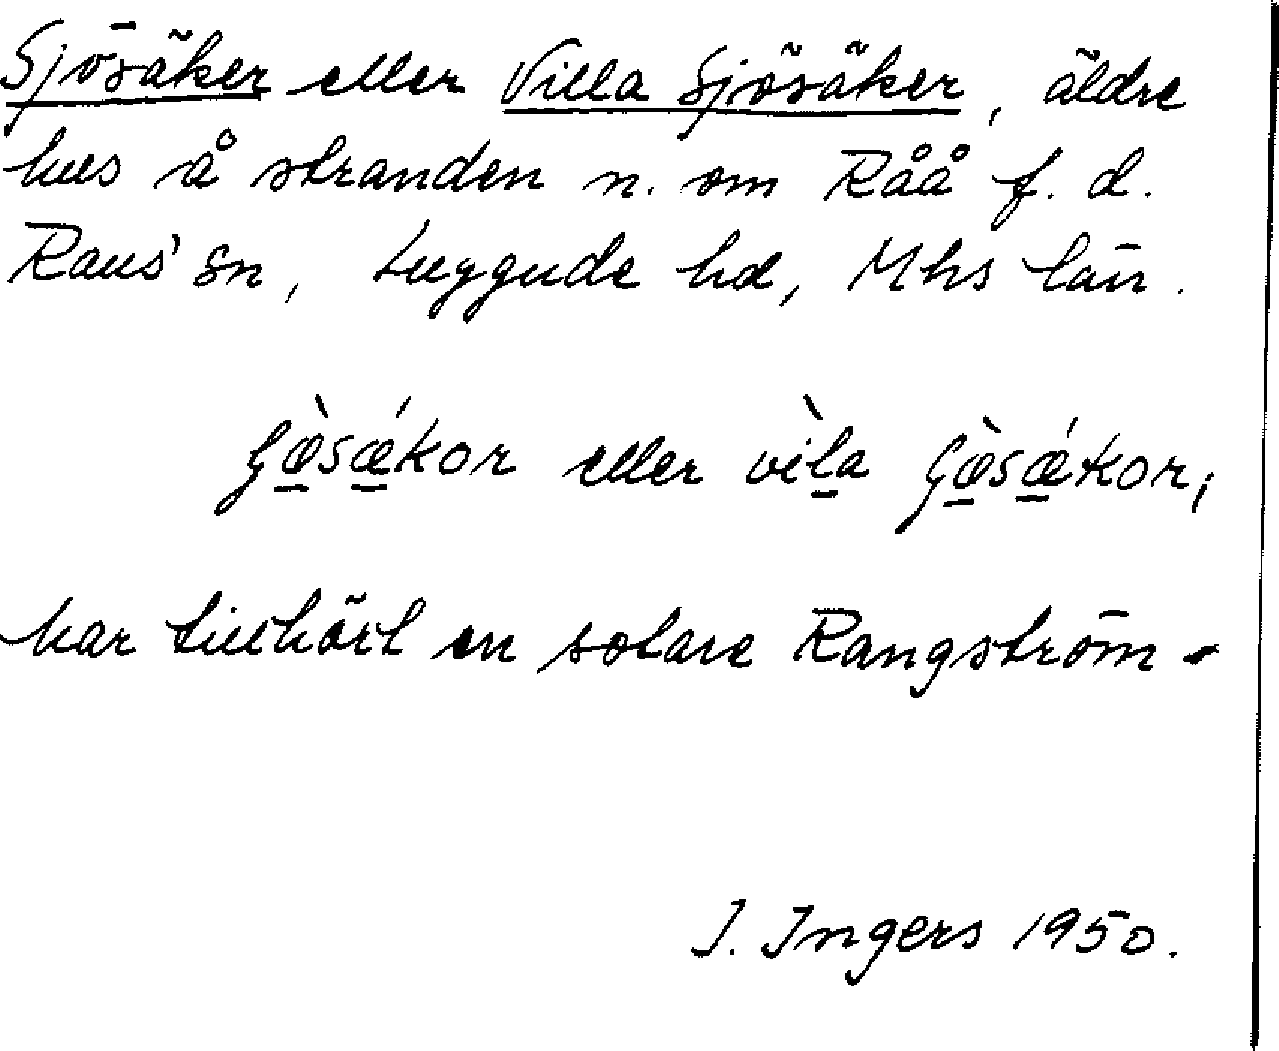 Sjösäker eller Villa Sjösäker, äldre
hus å stranden n. om Råå f. d.
Raus' sn, Luggude hd, Mhs län.
eller
har tillhört en sotare Rangström.
I. Ingers 1950.